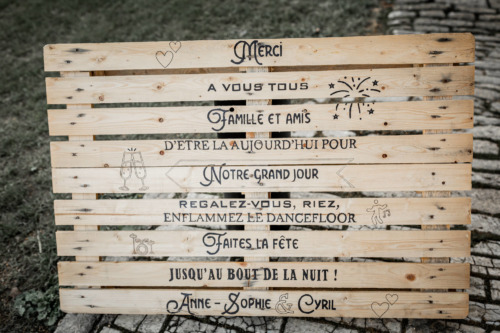 Merci
A VOUS TOUS
Famille et amis
D'ÊTRE LA AUJOURD'HUI POUR
Notre grand jour
REGALEZ-VOUS, RIEZ,
ENFLAMMEZ LE DANCEFLOOR
Faites la fête
JUSQU'AU BOUT DE LA NUIT !
Anne - Sophie & Cyril